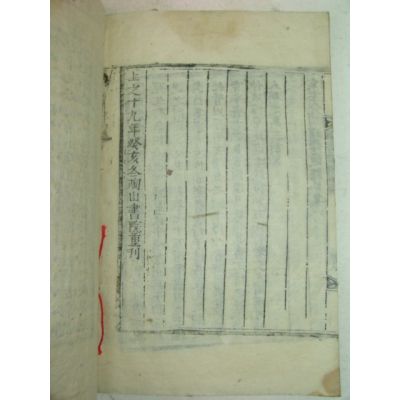 上之十九年癸亥冬陶山書院重刊